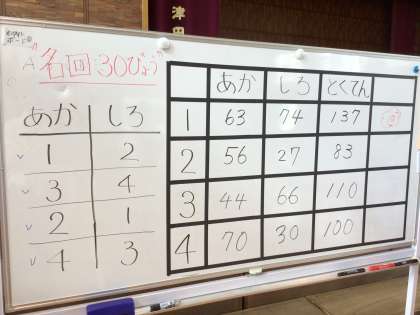 津田
ホワイト
ボード②
名回:30びょう
あか しろ
1 2
3 4
2 1
4 3
あか しろ とくてん
1 63 74 137
2 56 27 83
3 44 66 110
4 70 30 100